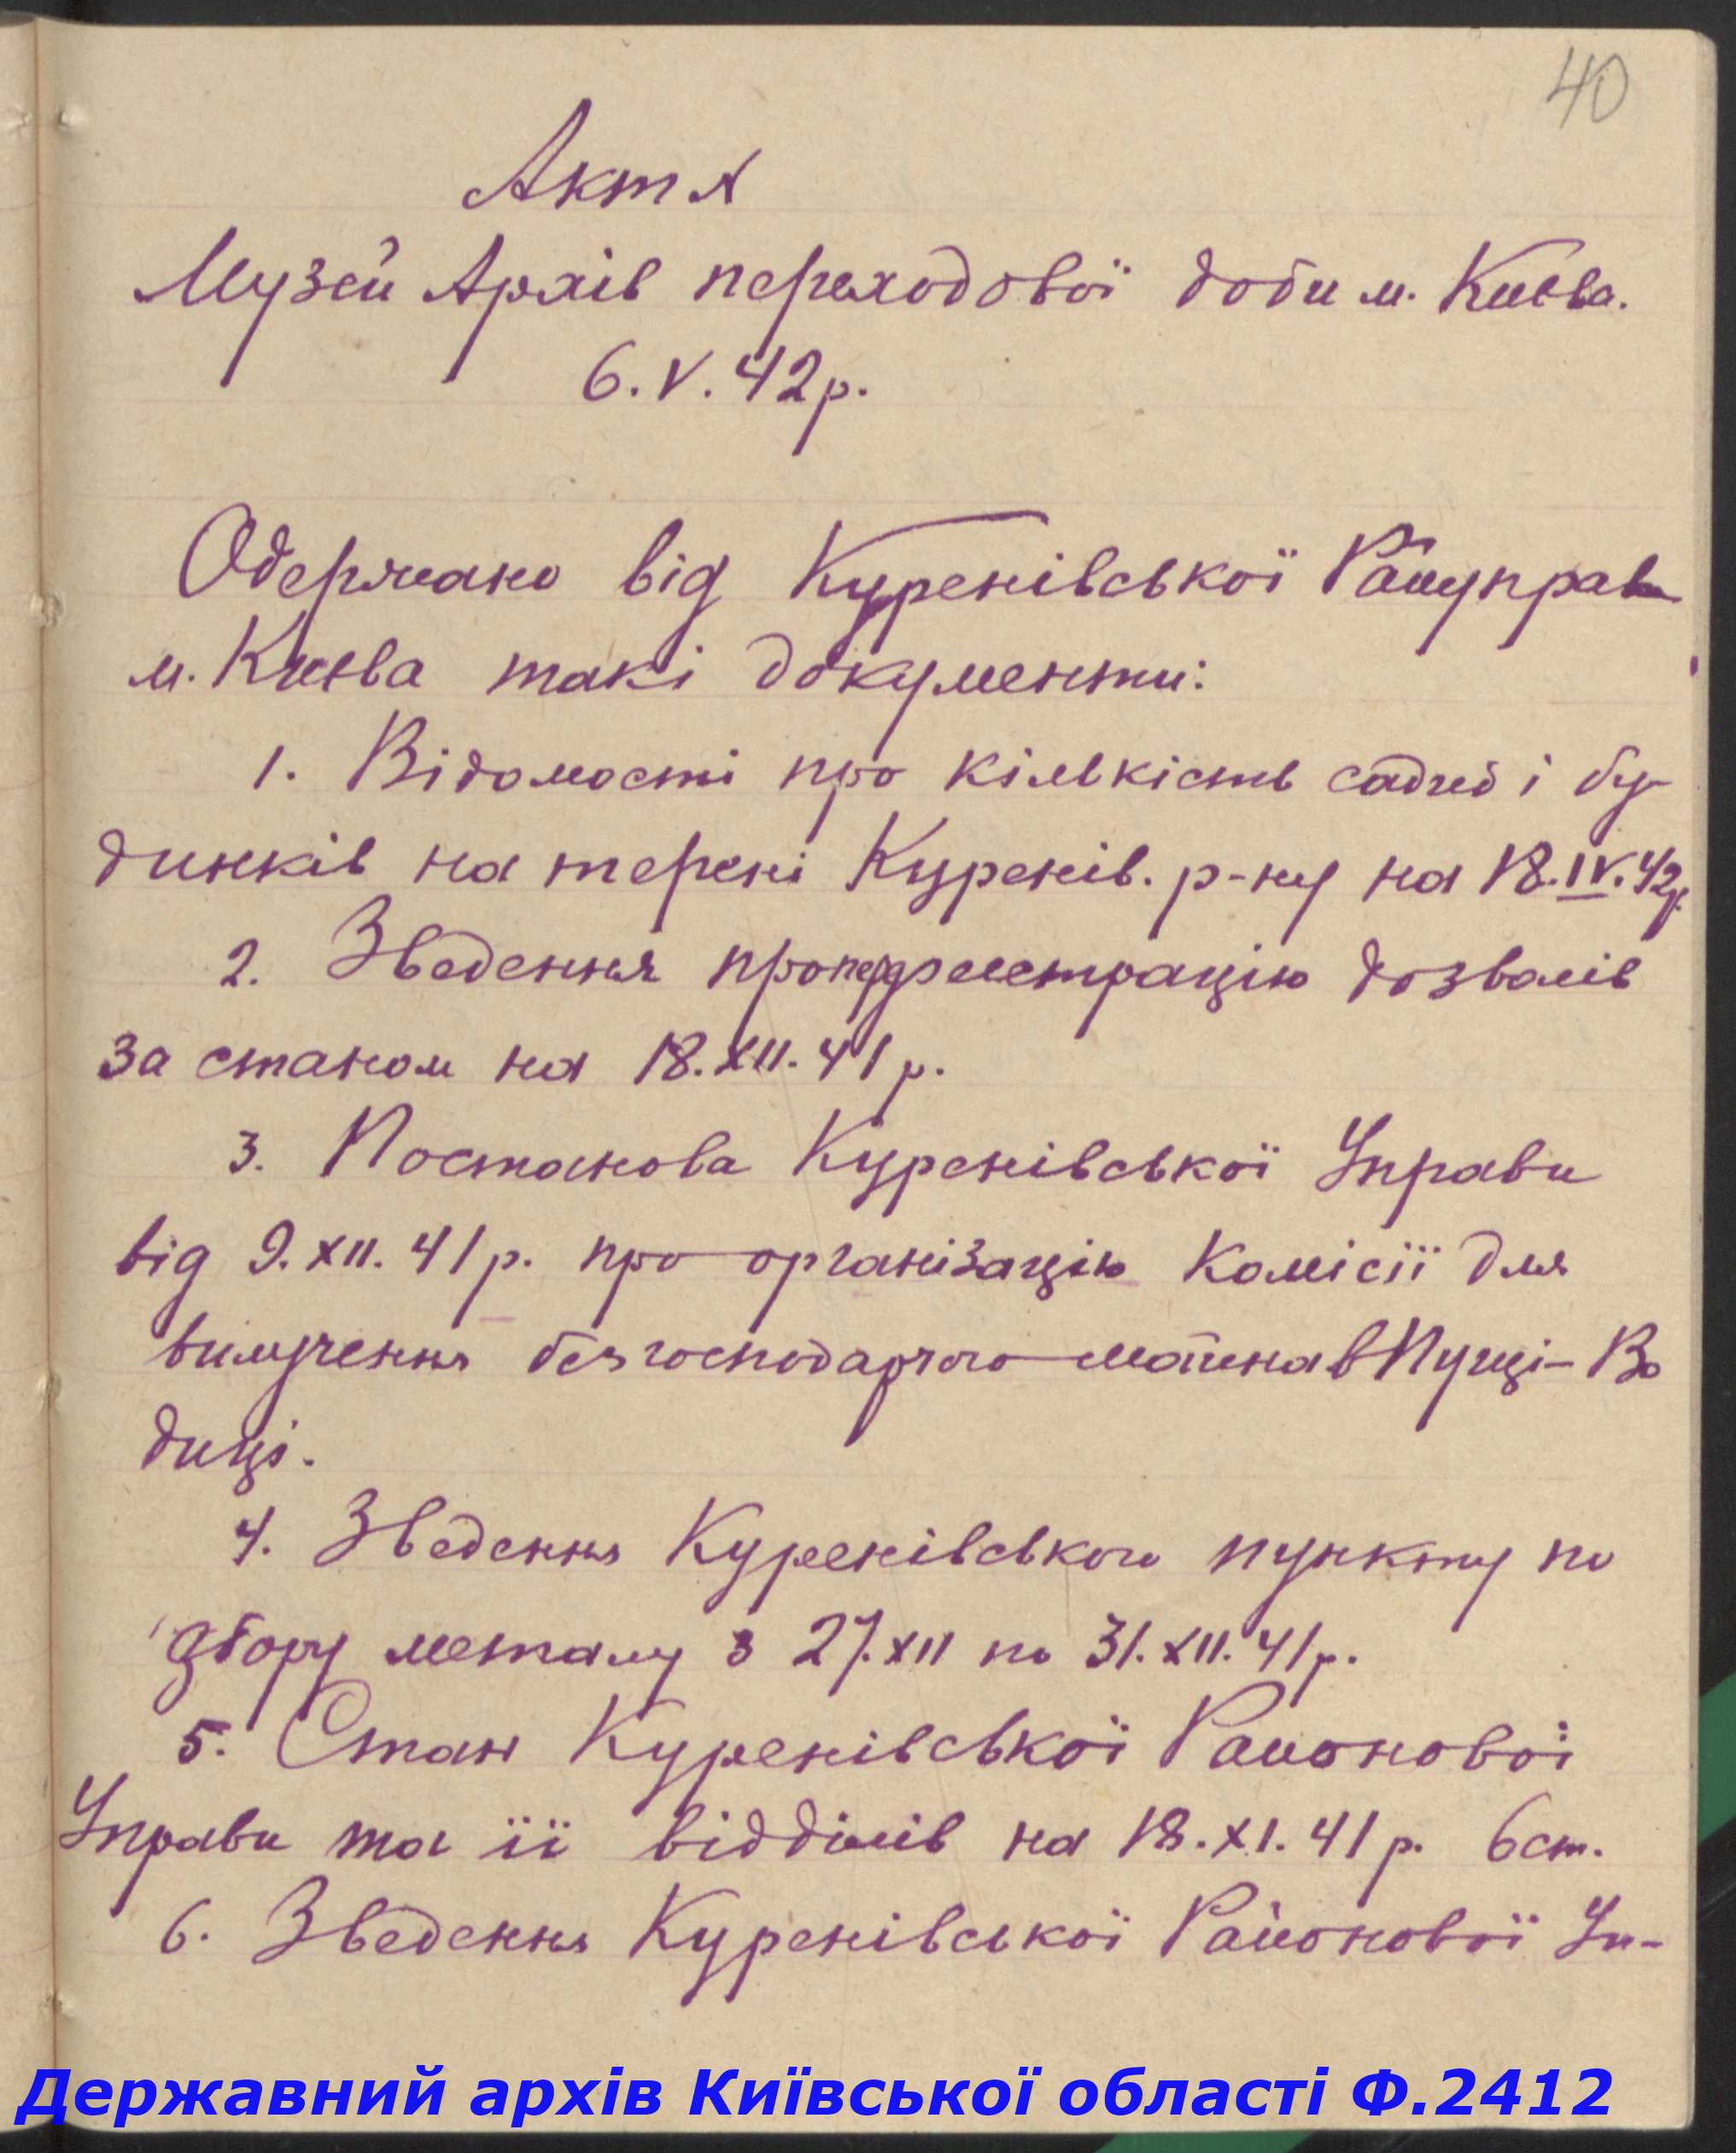 40
Акт №
Музей Архів переходової доби м. Києва.
6.V.42р.
Одержано від Куренівської Райуправи
м. Києва такі документи:
1. Відомості про кількість садиб і бу-
динків на терені Куренів. р-ну на 18.IV.42р.
2. Зведення про реєстрацію дозволів
за станом на 18.XII.41р.
3. Постанова Куренівської Управи
від 9.XII.41р. про організацію Комісії для
вилучення безгосподарчого майна в Пущі-Во
диці.
4. Зведення Куренівського пункту по
збору металу з 27.XII по 31.XII.41р.
5. Стан Куренівської Районової
Управи та її відділів на 18.XI.41р. 6ст.
6. Зведення Куренівської Районової Уп-
Державний архів Київської області Ф.2412